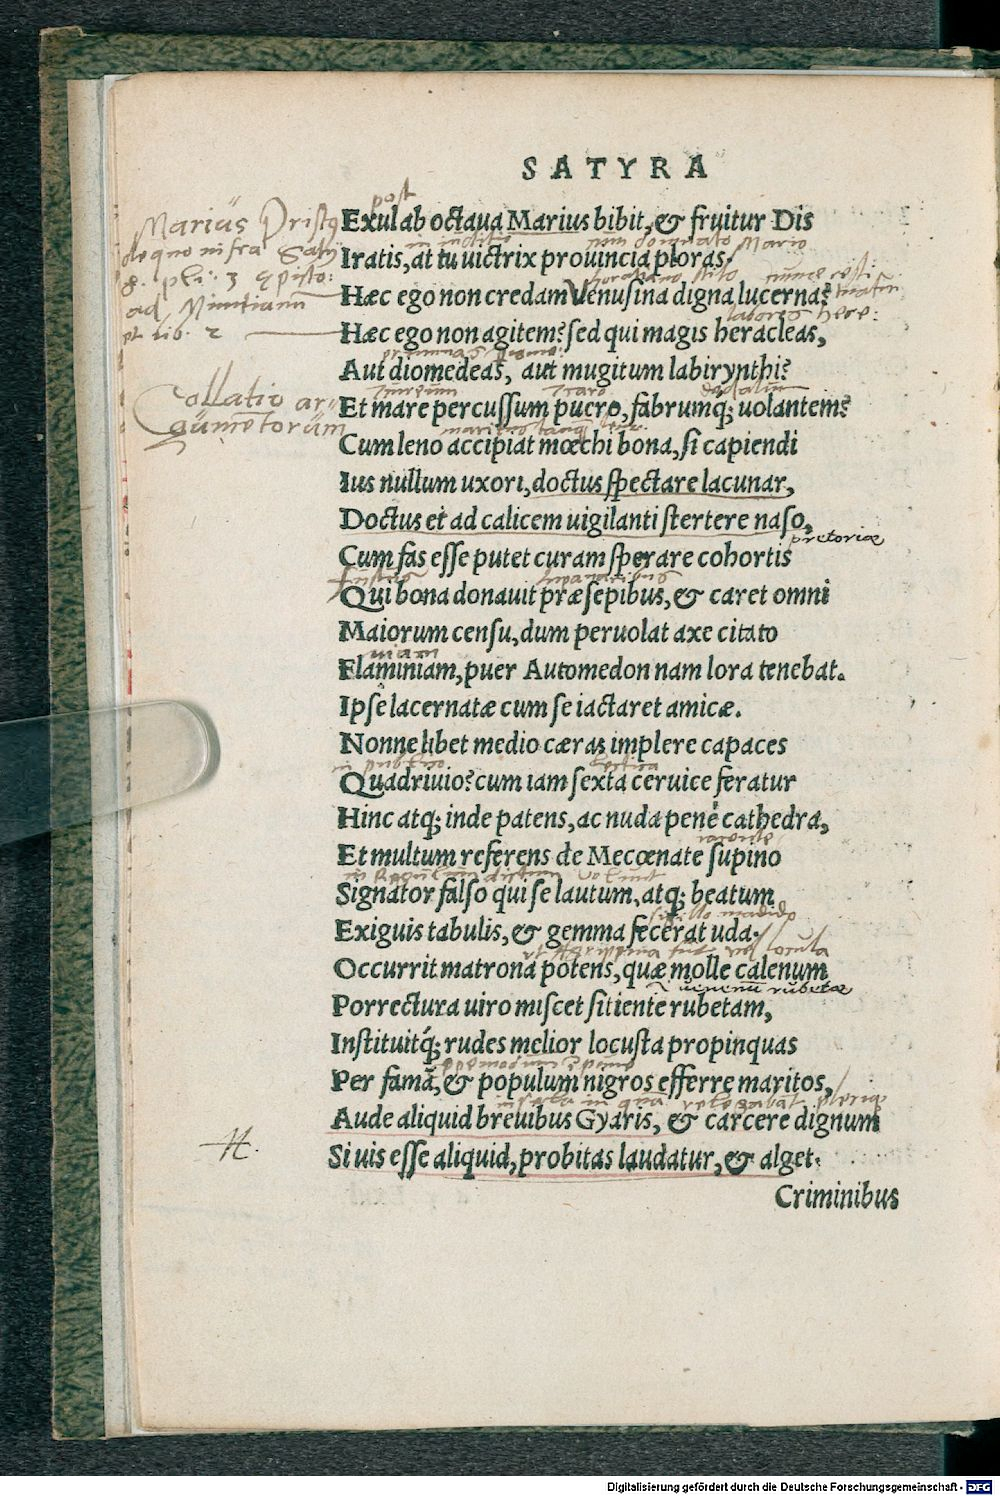 SATYRA
post
Exul ab octaua Marius bibit, & fruitur Dis
Marius Priscus
de quo infra Saty
non domnato Mario
Iratis, at tu uictrix prouincia ploras.
8. pli: 3 episto:
horatiano stilo
Hæc ego non credam Venusina digna lucerna?
ad Minutianum
labores herc:
et lib. 2
Hæc ego non agitem? sed qui magis heracleas,
Aut diomedeas, aut mugitum labirynthi?
Collatio ar-
gumentorum
Icaro
Et mare percussum puero, fabrumq; uolantem?
Cum leno accipiat mœchi bona, si capiendi
Ius nullum uxori, doctus spectare lacunar,
Doctus et ad calicem uigilanti stertere naso,
pretoriæ
Cum fas esse putet curam sperare cohortis
lupanaribus
Qui bona donauit præsepibus, & caret omni
Maiorum censu, dum peruolat axe citato
uiam
Flaminiam, puer Automedon nam lora tenebat.
Ipse lacernatæ cum se iactaret amicæ.
Nonne libet medio cæras implere capaces
in publico
lectica
Quadriuio? cum iam sexta ceruice feratur
Hinc atq; inde patens, ac nuda penè cathedra,
Et multum referens de Mecœnate supino
Signator falso qui se lautum, atq; beatum
sigillo madido
Exiguis tabulis, & gemma fecerat uda.
ut Agrippina fuit vel locusta
Occurrit matrona potens, quæ molle calenum
uenenum rubetæ
Porrectura uiro miscet sitiente rubetam,
Instituitq́; rudes melior locusta propinquas
Per famã, & populum nigros efferre maritos,
insula in quã relegabãt
Aude aliquid breuibus Gyaris, & carcere dignum
Si uis esse aliquid, probitas laudatur, & alget.
Criminibus
Digitalisierung gefördert durch die Deutsche Forschungsgemeinschaft - DFG